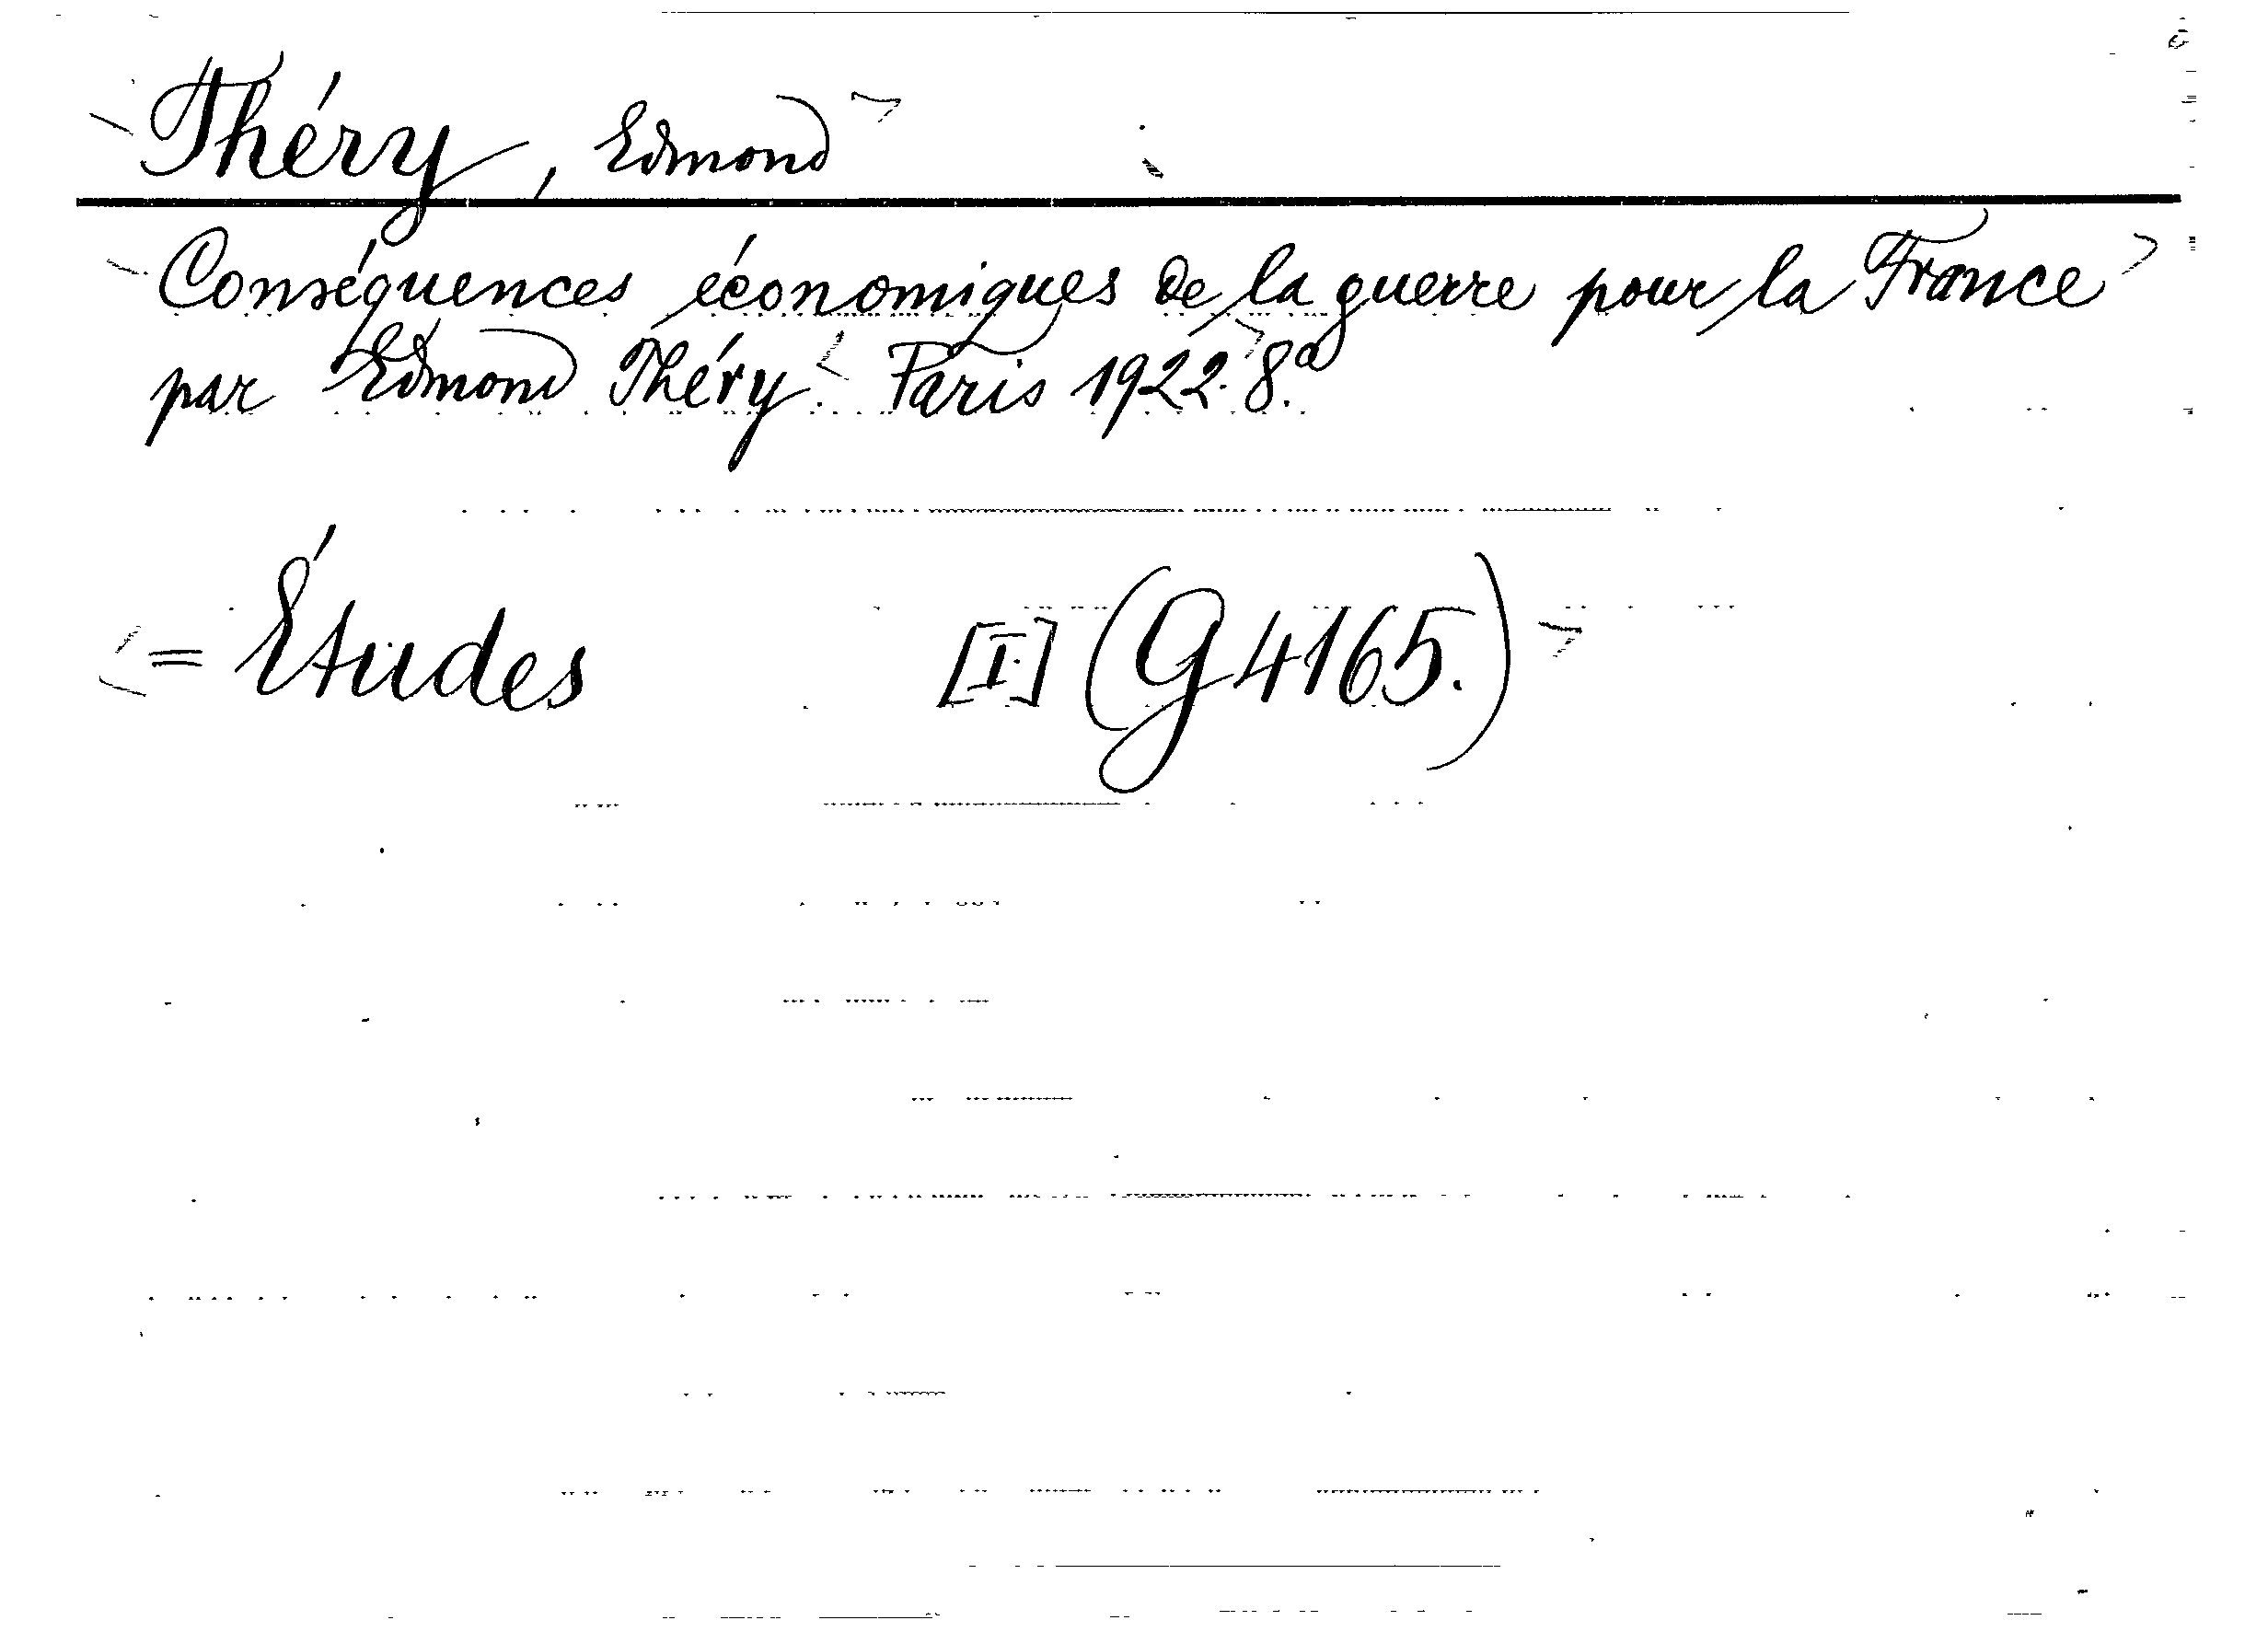 Théry, Edmond
Conséquences économiques de la guerre pour la France
par Edmond Théry. Paris 1922. 8.º
= Études [I] (G 4165.)